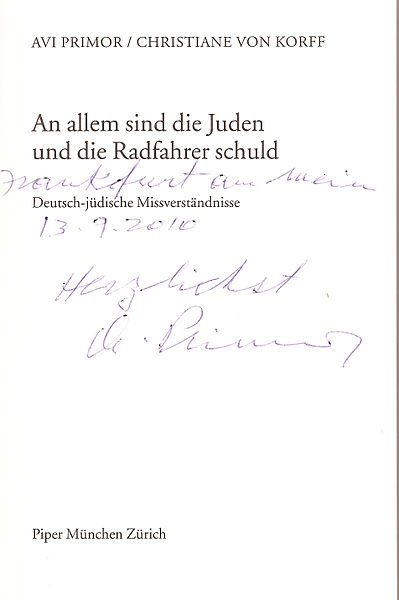 AVI PRIMOR / CHRISTIANE VON KORFF
An allem sind die Juden
und die Radfahrer schuld
Frankfurt am Main
Deutsch-jüdische Missverständnisse
13.9.2010
Herzlichst
A. Primor
Piper München Zürich